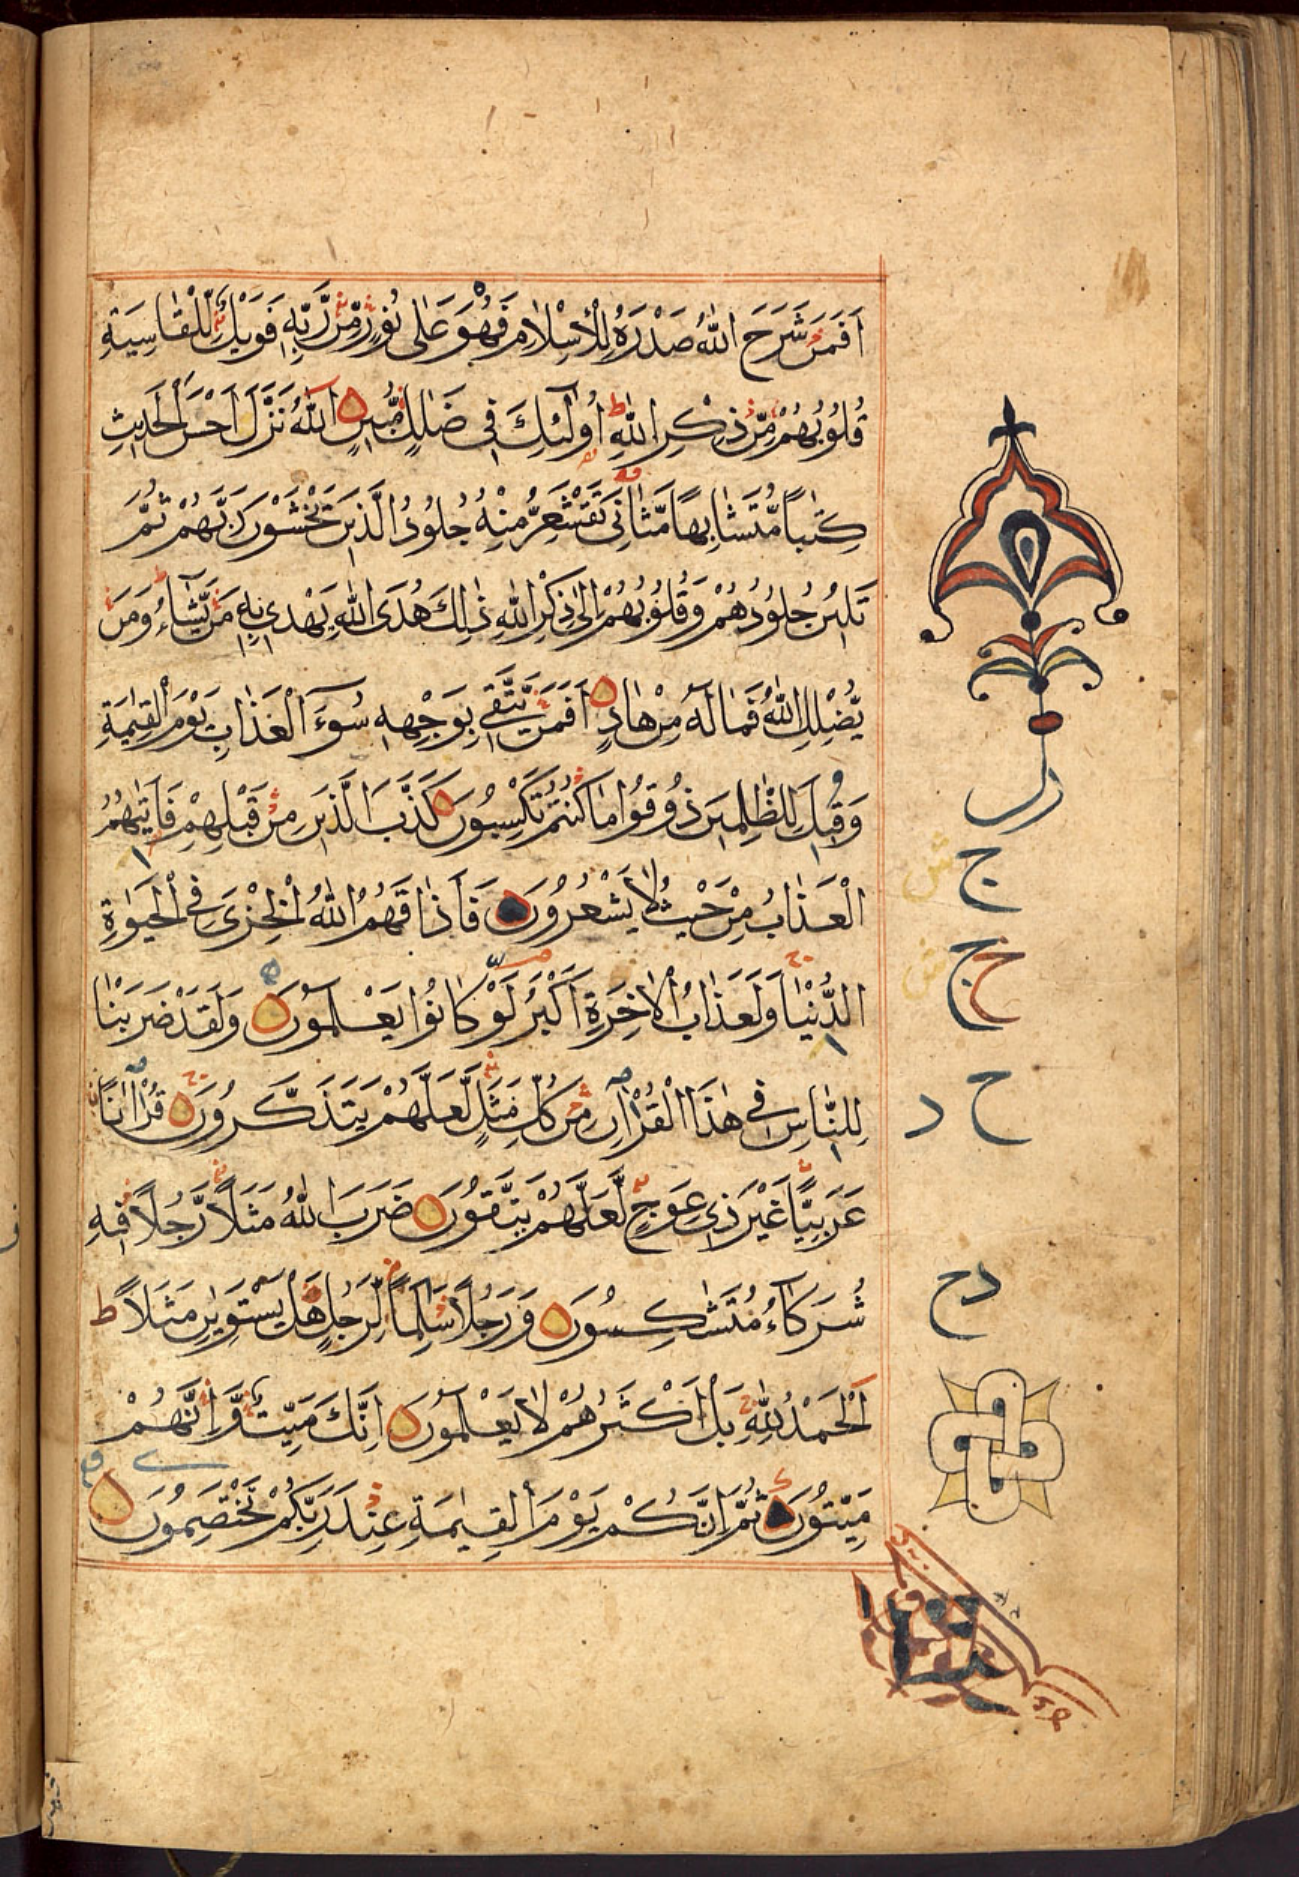 اَفَمَنْ شَرَحَ اللّٰهُ صَدْرَهُ لِلْاِسْلَامِ فَهُوَ عَلٰى نُورٍ مِّنْ رَّبِّهٖ فَوَيْلٌ لِّلْقٰاسِيَةِ
قُلُوبُهُمْ مِّنْ ذِكْرِ اللّٰهِ ط اُولٰٓئِكَ فِى ضَلٰلٍ مُّبِينٍ اَللّٰهُ نَزَّلَ اَحْسَنَ الْحَدِيثِ
كِتٰباً مُّتَشٰابِهاً مَّثٰانِىَ تَقْشَعِرُّ مِنْهُ جُلُودُ الَّذِينَ يَخْشَوْنَ رَبَّهُمْ ثُمَّ
تَلِينُ جُلُودُهُمْ وَقُلُوبُهُمْ اِلٰى ذِكْرِ اللّٰهِ ذٰلِكَ هُدَى اللّٰهِ يَهْدِى بِهٖ مَنْ يَّشَآءُ وَمَنْ
يُّضْلِلِ اللّٰهُ فَمَا لَهُ مِنْ هَادٍ اَفَمَنْ يَّتَّقِى بِوَجْهِهٖ سُوٓءَ الْعَذَابِ يَوْمَ الْقِيٰمَةِ
وَقِيلَ لِلظّٰلِمِينَ ذُوقُوا مَا كُنْتُمْ تَكْسِبُونَ كَذَّبَ الَّذِينَ مِنْ قَبْلِهِمْ فَاَتٰيهُمُ
الْعَذَابُ مِنْ حَيْثُ لَا يَشْعُرُونَ فَاَذَاقَهُمُ اللّٰهُ الْخِزْىَ فِى الْحَيٰوةِ
الدُّنْيٰا وَلَعَذَابُ الْاٰخِرَةِ اَكْبَرُ لَوْ كَانُوا يَعْلَمُونَ وَلَقَدْ ضَرَبْنَا
لِلنَّاسِ فِى هٰذَا الْقُرْاٰنِ مِنْ كُلِّ مَثَلٍ لَّعَلَّهُمْ يَتَذَكَّرُونَ قُرْاٰنًا
عَرَبِيًّا غَيْرَ ذِى عِوَجٍ لَّعَلَّهُمْ يَتَّقُونَ ضَرَبَ اللّٰهُ مَثَلًا رَّجُلًا فِيهِ
شُرَكَآءُ مُتَشٰكِسُونَ وَرَجُلًا سَلَمًا لِّرَجُلٍ هَلْ يَسْتَوِيٰنِ مَثَلًا ط
اَلْحَمْدُ لِلّٰهِ بَلْ اَكْثَرُهُمْ لَا يَعْلَمُونَ اِنَّكَ مَيِّتٌ وَّاِنَّهُمْ
مَيِّتُونَ ثُمَّ اِنَّكُمْ يَوْمَ الْقِيٰمَةِ عِنْدَ رَبِّكُمْ تَخْتَصِمُونَ
ج
ج ح
ح د
دح